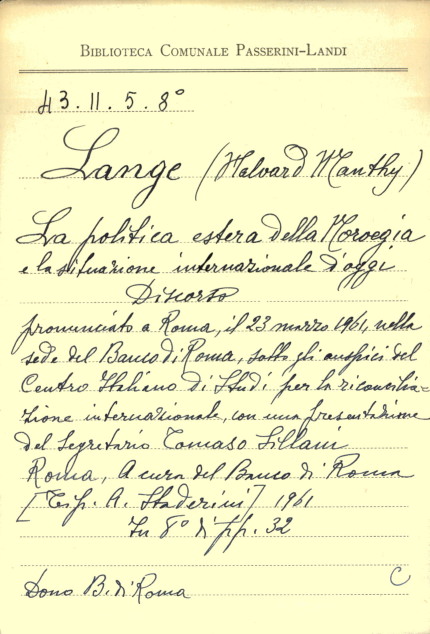 BIBLIOTECA COMUNALE PASSERINI-LANDI
43.11.5.8°
Lange (Halvard Manthy)
La politica estera della Norvegia
e la situazione internazionale d'oggi
Discorso
pronunciato a Roma, il 23 marzo 1961, nella
sede del Banco di Roma, sotto gli auspici del
Centro Italiano di Studi per la riconcilia=
zione internazionale, con una presentazione
del Segretario Tomaso Sillani
Roma, A cura del Banco di Roma
[Tip. A. Staderini] 1961
In 8° di pp. 32
Dono B. di Roma
C